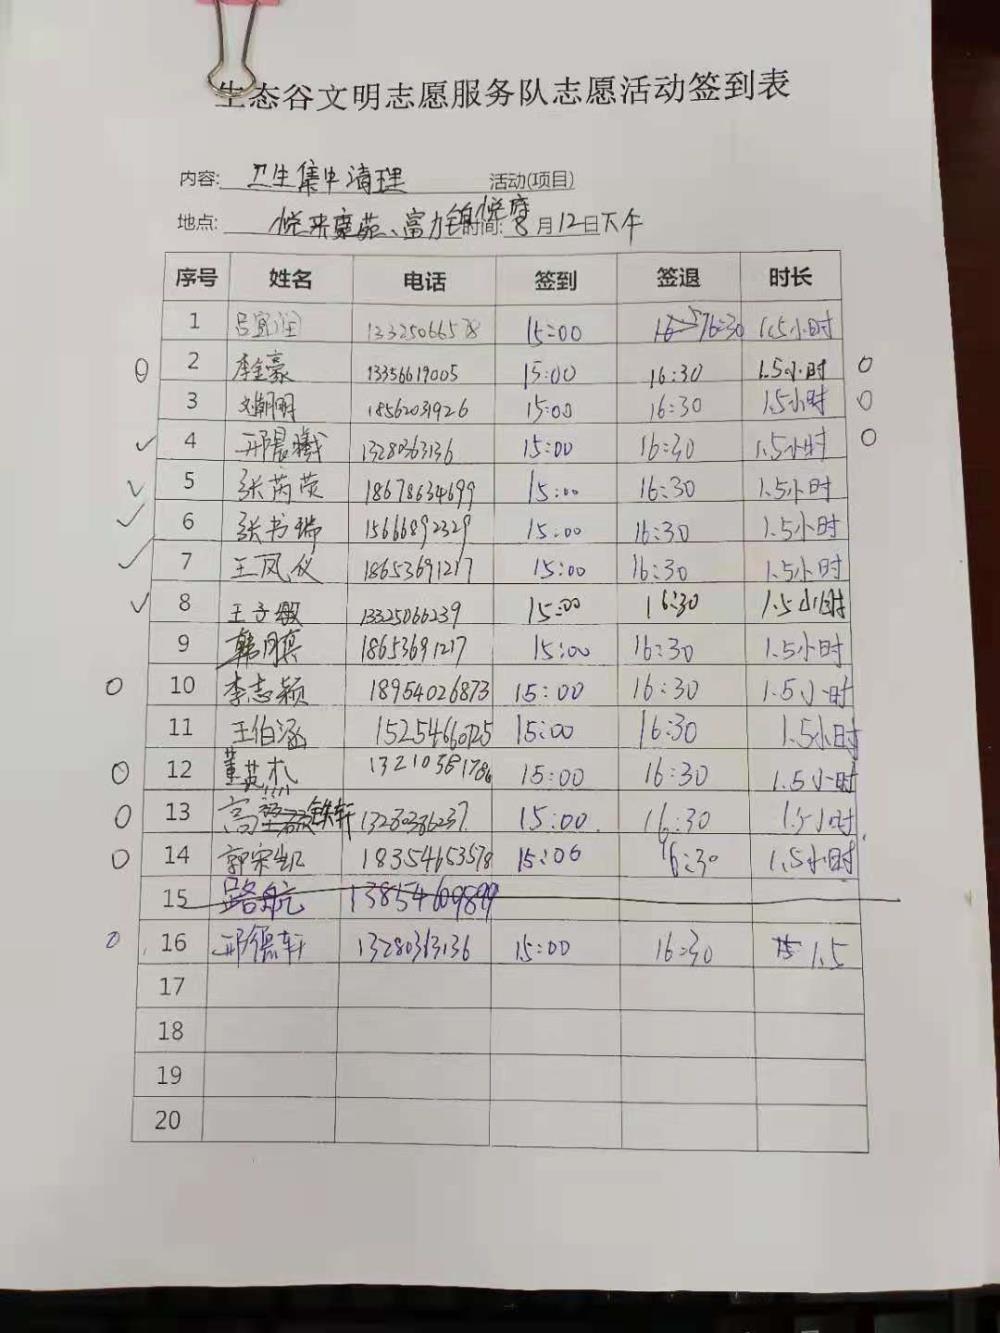 生态谷文明志愿服务队志愿活动签到表
内容: 卫生集中清理 活动(项目)
地点: 悦来 苑、富力 悦府 时间: 8月12日下午
序号 姓名 电话 签到 签退 时长
1 吕宜润 13325066578 15:00 16:30 1.5小时
2 李金豪 13356619005 15:00 16:30 1.5小时
3 刘朝明 18562031926 15:00 16:30 1.5小时
4 邢晨曦 13280363136 15:00 16:30 1.5小时
5 张芮荧 18678634699 15:00 16:30 1.5小时
6 张书瑞 15666892329 15:00 16:30 1.5小时
7 王凤仪 18653691217 15:00 16:30 1.5小时
8 王子 13325066239 15:00 16:30 1.5小时
9 韩 18653691217 15:00 16:30 1.5小时
10 李志颖 18954026873 15:00 16:30 1.5小时
11 王伯涵 15254660725 15:00 16:30 1.5小时
12 董英杰 15:00 16:30 1.5小时
13 高 轩 15:00 16:30 1.5小时
14 郭宋凯 18354653578 15:00 16:30 1.5小时
15 路航
16 邢德轩 13280363136 15:00 16:30 1.5
17
18
19
20